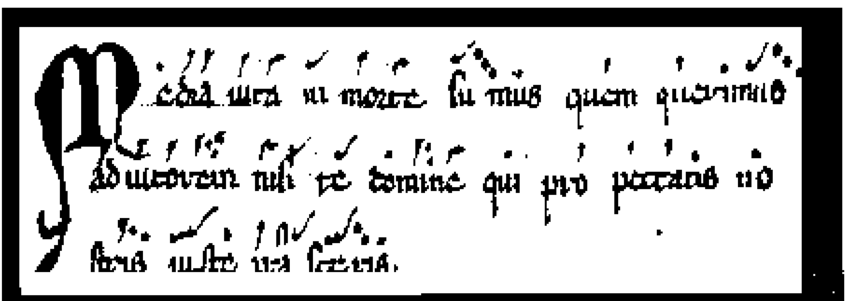 Media uita in morte sumus quem querimus
adiutorem nisi te domine qui pro peccatis no
stris iuste irasceris.